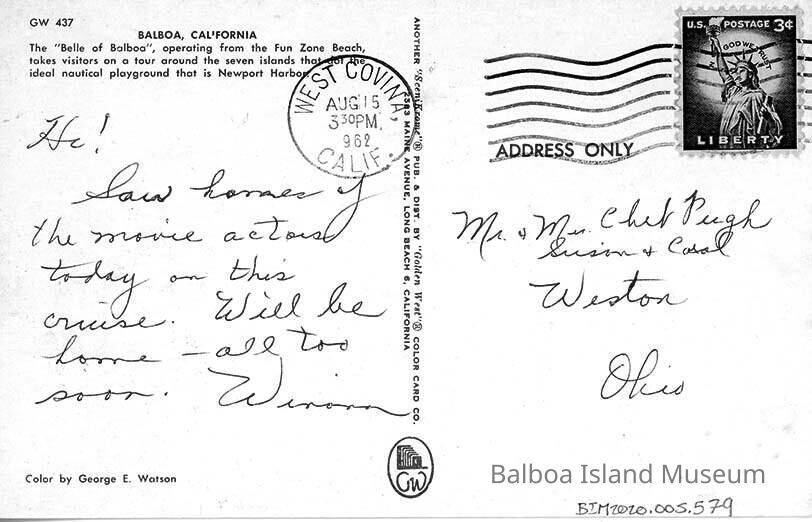 GW 437
BALBOA, CAL'FORNIA
The "Belle of Balboa", operating from the Fun Zone Beach,
takes visitors on a tour around the seven islands that dot the
ideal nautical playground that is Newport Harbor.
WEST COVINA,
AUG 15
3 30 PM
962
CALIF.
Hi!
Saw homes of
the movie actors
today on this
cruise. Will be
home – all too
soon. Winona
Color by George E. Watson
ANOTHER "SceniKrome"® PUB. & DIST. BY "Golden West"® COLOR CARD CO.
MAINE AVENUE, LONG BEACH 6, CALIFORNIA
GW
U.S. POSTAGE 3¢
IN GOD WE TRUST
LIBERTY
ADDRESS ONLY
Mr. & Mrs. Chet Pugh
Susan & Carol
Weston
Ohio
Balboa Island Museum
BIM2020.005.579